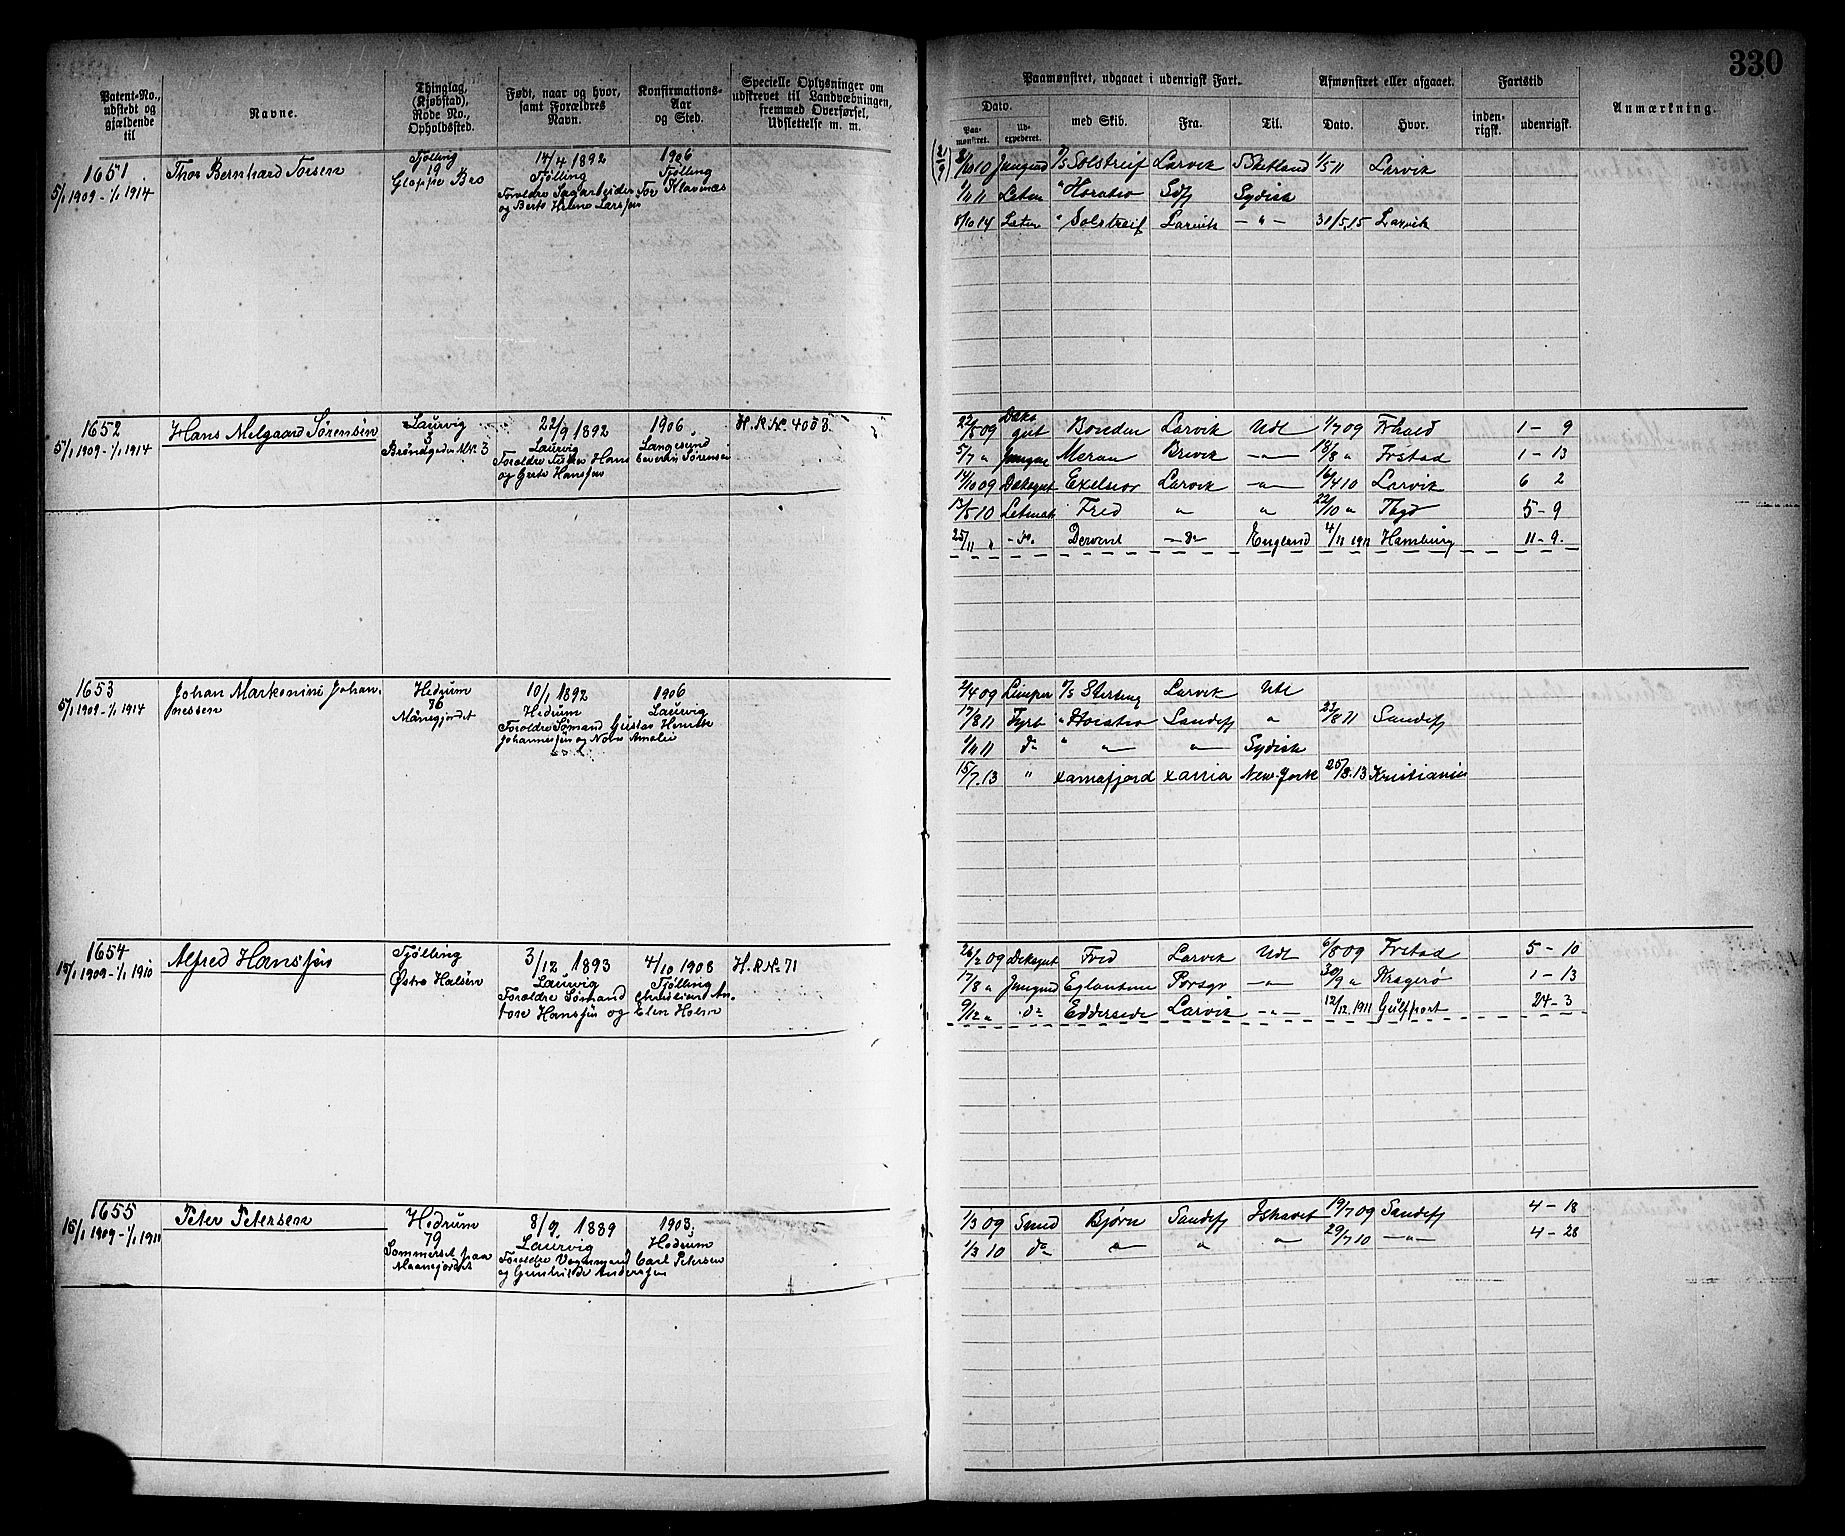 330
Patent-No., udstedt og gjældende til
Navne.
Thinglag, (Kjøbstad), Rode No., Opholdssted.
Født, naar og hvor, samt Forældres Navn.
Konfirmations-Aar og Sted.
Specielle Oplysninger om udskrevet til Landvæbningen, fremmed Overførsel, Udslettelse m. m.
Paamønstret, udgaaet i udenrigsk Fart.
Dato.
Paa-mønstret.
Ud-expederet.
med Skib.
Fra.
Til.
Afmønstret eller afgaaet.
Dato.
Hvor.
Fartstid
inden-rigsk.
udenrigsk.
Anmærkning.
1651
5/1 1909 - 1/1 1914
Thor Bernhard Torsen
Tjølling
19
Gloppe Bro
14/4 1892
Tjølling
Forældre Sagarbeider Tor
og Berte Helene Larsen
1906
Tjølling
Klavenæs
10 Jungmd Solstreif Larvik Shetland 1/5 11 Larvik
1/4 11 Letm " Horatio Sdfj Sydish
8/10 14 Letm " Solstreif Larvik - " - 31/5 15 Larvik
1652
5/1 1909 - 1/1 1914
Hans Melgaard Sørensen
Laurvig
3
Brøndgaden No. 3
22/9 1892
Laurvig
Forældre Tusker Hans Severin Sørensen
og Gerte Hansen
1906
Langesund
H.R.No. 4003.
22/5 09 Dæksgut Bonden Larvik Udl 1/7 09 Frhald 1 - 9
5/7 " Jungm Meran Brevik - " - 18/8 " Frstad 1 - 13
14/10 09 Dæksgut Exelsior Larvik - " - 16/4 10 Larvik 6 2
13/5 10 Letmat Fred " " 22/10 " Tbgd 5 - 9
25/11 " - do. Dervent - do - England 4/11 1911 Hamburg 11 - 9.
1653
5/1 1909 - 1/1 1914
Johan Markonini Johan-
nessen
Hedrum
76
Månegjordet
10/1 1892
Hedrum
Forældre Sømand Gustav Henrik
Johannesen og Nora Amalie
1906
Laurvig
2/4 09 Limper Sterling Larvik Udl
17/8 11 Fyrb " Horatio Sandefj " 23/8 11 Sandefj
1/4 11 do " " " Sydish
15/7 13 " Xaniafjord Xania New-York 25/8 13 Kristiania
1654
15/1 1909 - 1/1 1910
Alfred Hansen
Tjølling
Østre Halsen
3/12 1893
Laurvig
Forældre Sømand Christian An.
Tore Hansen og Elen Holm
4/10 1908
Tjølling
H.R.No. 71
26/2 09 Dæksgut Fred Larvik Udl 6/8 09 Frstad 5 - 10
17/8 " Jungmd Eglantine Porsgr - " - 30/9 " Kragerø 1 - 13
9/12 " do Edderside Larvik - " - 12/12 1911 Gulfport 24 - 3
1655
Peter Petersen
Hedrum
79
Sommersted paa
Maanejordet
8/9 1889
Laurvig
Forældre Vognmand Carl Petersen
og Gunhilde Andersen
1903.
Hedrum
1/3 09 Smed Bjørn Sandefj Ishavet 19/7 09 Sandefj 4 - 18
1/3 10 do " " " 29/7 10 - " - 4 - 28